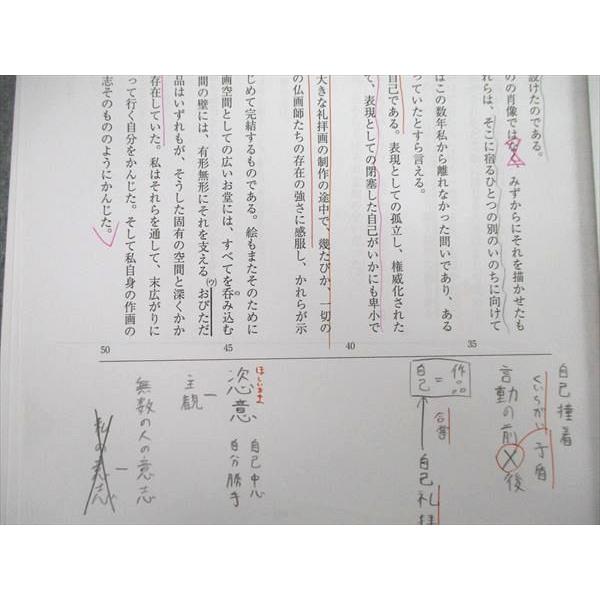 設けたのである。
のの肖像ではなく、みずからにそれを描かせたも
れらは、そこに宿るひとつの別のいのちに向けて
はこの数年私から離れなかった問いであり、ある
っていたとすら言える。
自己である。表現としての孤立し、権威化された
て、表現としての閉塞した自己がいかにも卑小で
大きな礼拝画の制作の途中で、幾たびか、一切の
の仏画師たちの存在の強さに感服し、かれらが示
じめて完結するものである。絵もまたそのために
画空間としての広いお堂には、すべてを呑み込む
間の壁には、有形無形にそれを支える(ウ)おびただ
品はいずれもが、そうした固有の空間と深くかか
存在していた。私はそれらを通して、末広がりに
って行く自分をかんじた。そして私自身の作画の
志そのもののようにかんじた。
35
40
45
50
自己撞着
くいちがい 矛盾
言動の前×後
作品=自己
合掌
自己礼拝
恣意
ほしいまま
自己中心
自分勝手
主観
無数の人の意志
私の意志